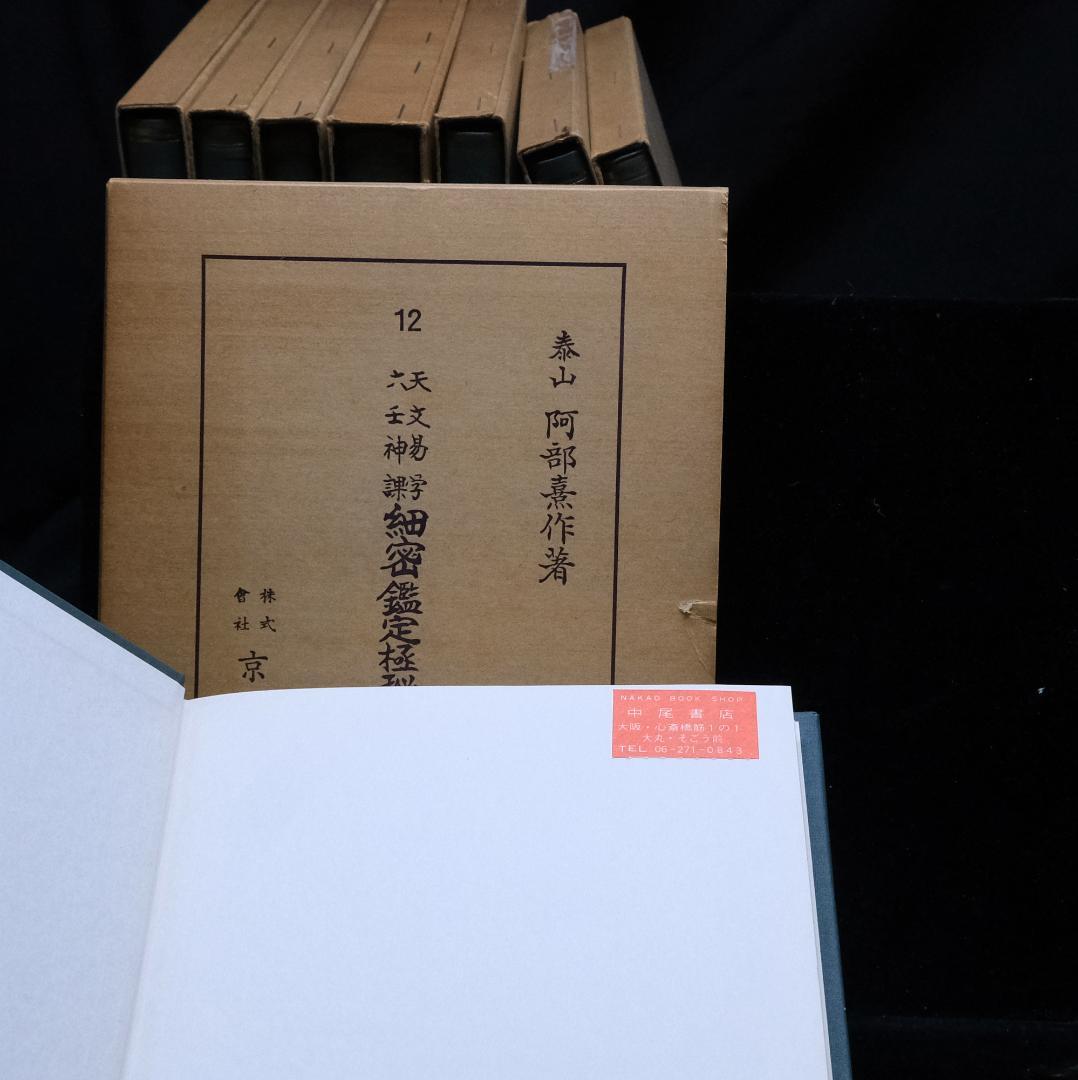 12
泰山 阿部熹作著
天文易学
六壬神課
細密鑑定極
株式
會社
京
NAKAO BOOK SHOP
中尾書店
大阪・心斎橋筋1の1
大丸・そごう前
TEL 06-271-0843